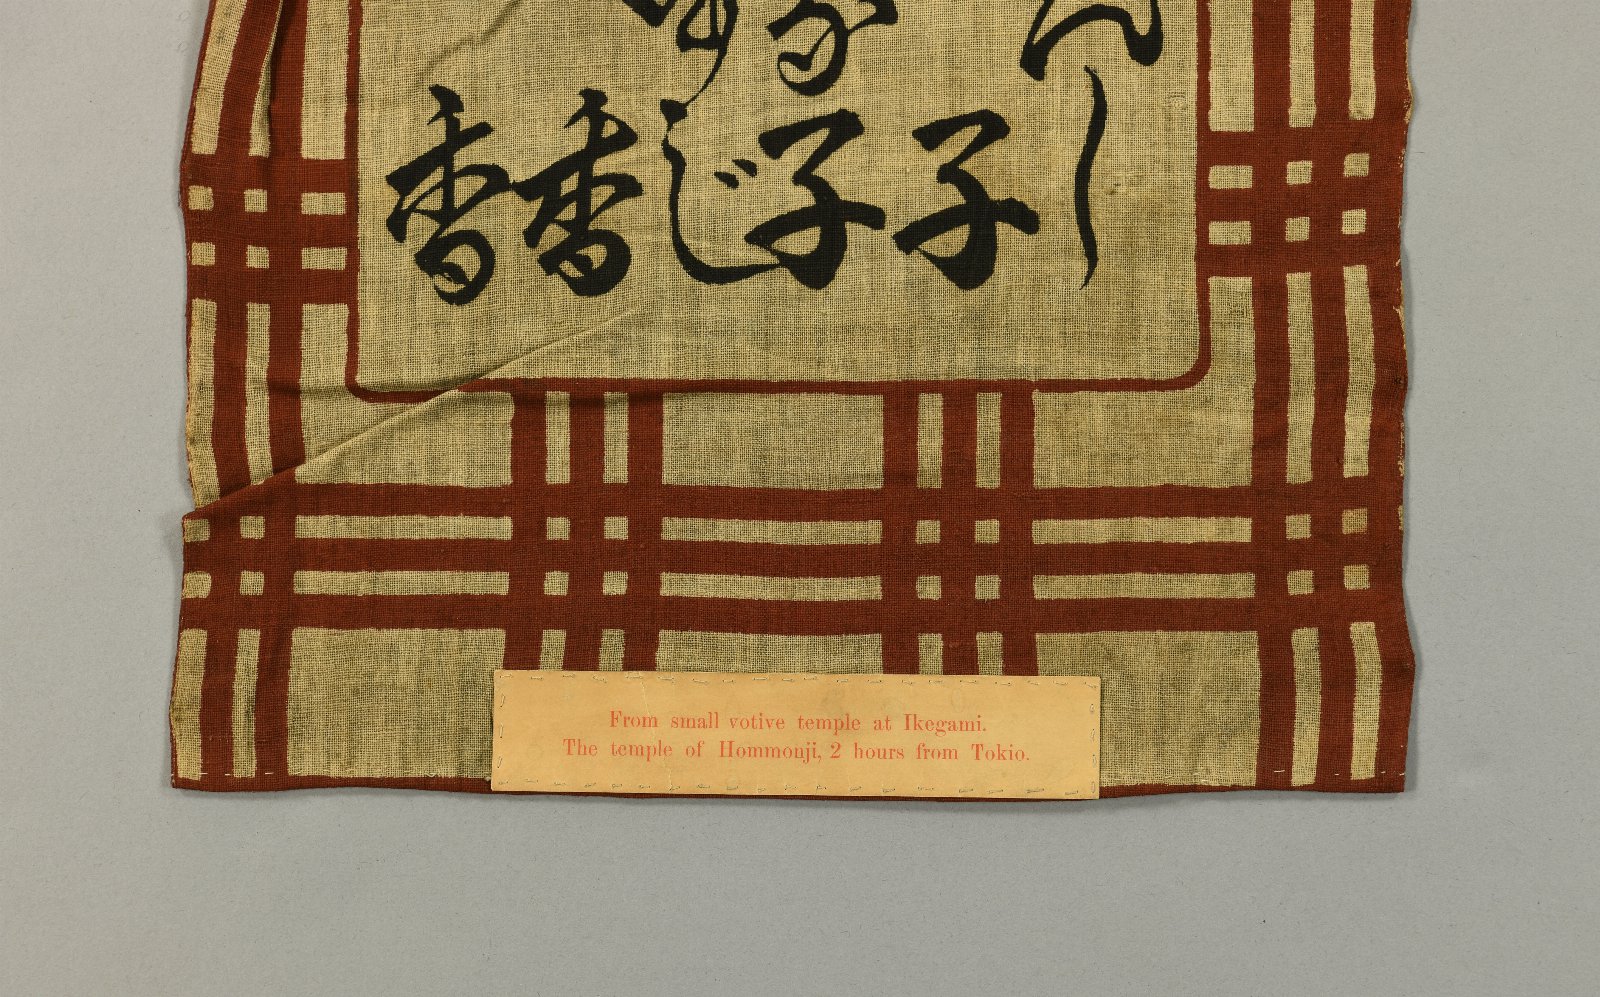 んし
子
子
じ
香
香
From small votive temple at Ikegami.
The temple of Hommonji, 2 hours from Tokio.